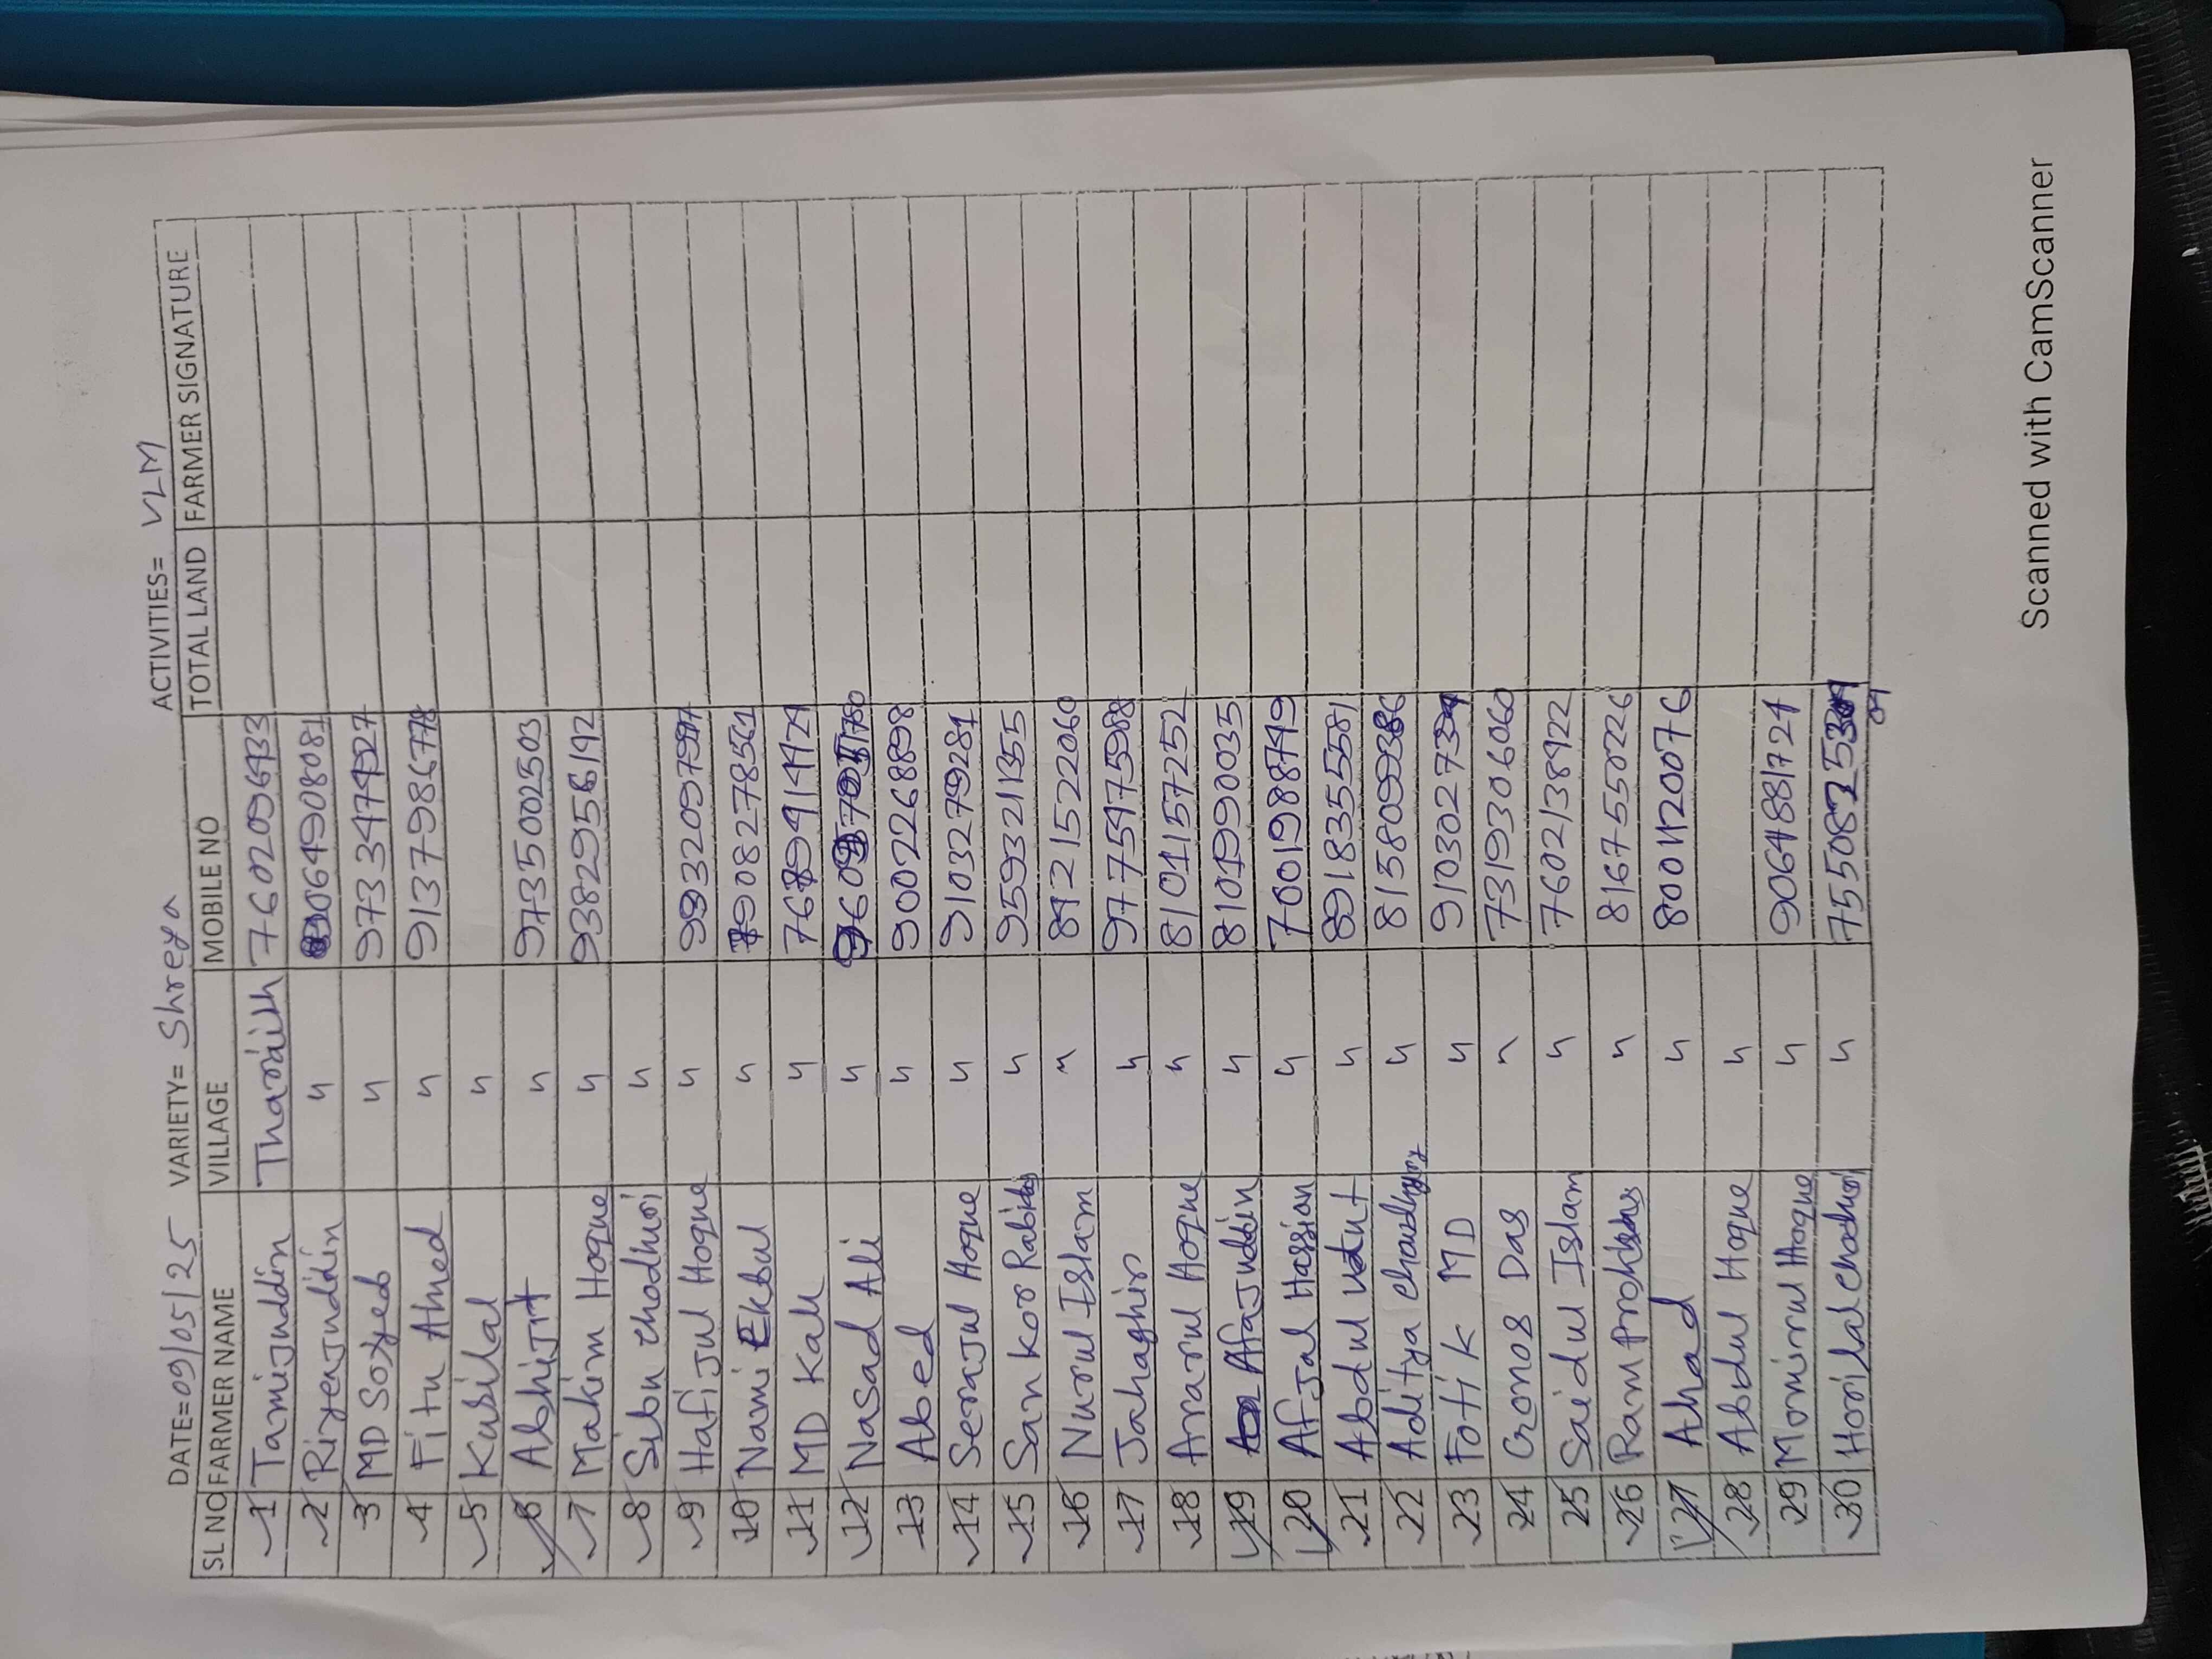 DATE=09/05/25 VARIETY= Shreya ACTIVITIES= VLM
SL NO FARMER NAME VILLAGE MOBILE NO TOTAL LAND FARMER SIGNATURE
1 Tamijuddin Tharaikh 7602096933
2 Riyenjuddin " 9064908081
3 MD Soyeb " 9733474927
4 Fitu Ahmed " 9137986778
5 Kusilal "
6 Abhijit " 9735002503
7 Mahim Hoque " 9382956192
8 Sibu chodhuri "
9 Hafijul Hoque " 9932097997
10 Nami Ekbul " 7908278561
11 MD Kalu " 7689914429
12 Nasad Ali "
13 Abed " 9002268898
14 Serajul Hoque " 9103279281
15 Sankor Rabidas " 9593211355
16 Nurul Islam " 8921522060
17 Jahaghir " 9775475988
18 Ararul Hoque " 8101157252
19 Afajuddin " 8101990035
20 Afjal Hassian " 7001988749
21 Abdul " 8918355581
22 Aditya Chaudhyry " 8158099386
23 Fotik MD " 9103027394
24 Gonos Das " 7319306060
25 Saidul Islam " 7602138922
26 Ram " 8167550226
27 Ahad " 8001120076
28 Abdul Hoque "
29 Mominul Hoque " 9064881724
30 Horilal chodhuri "
09
Scanned with CamScanner